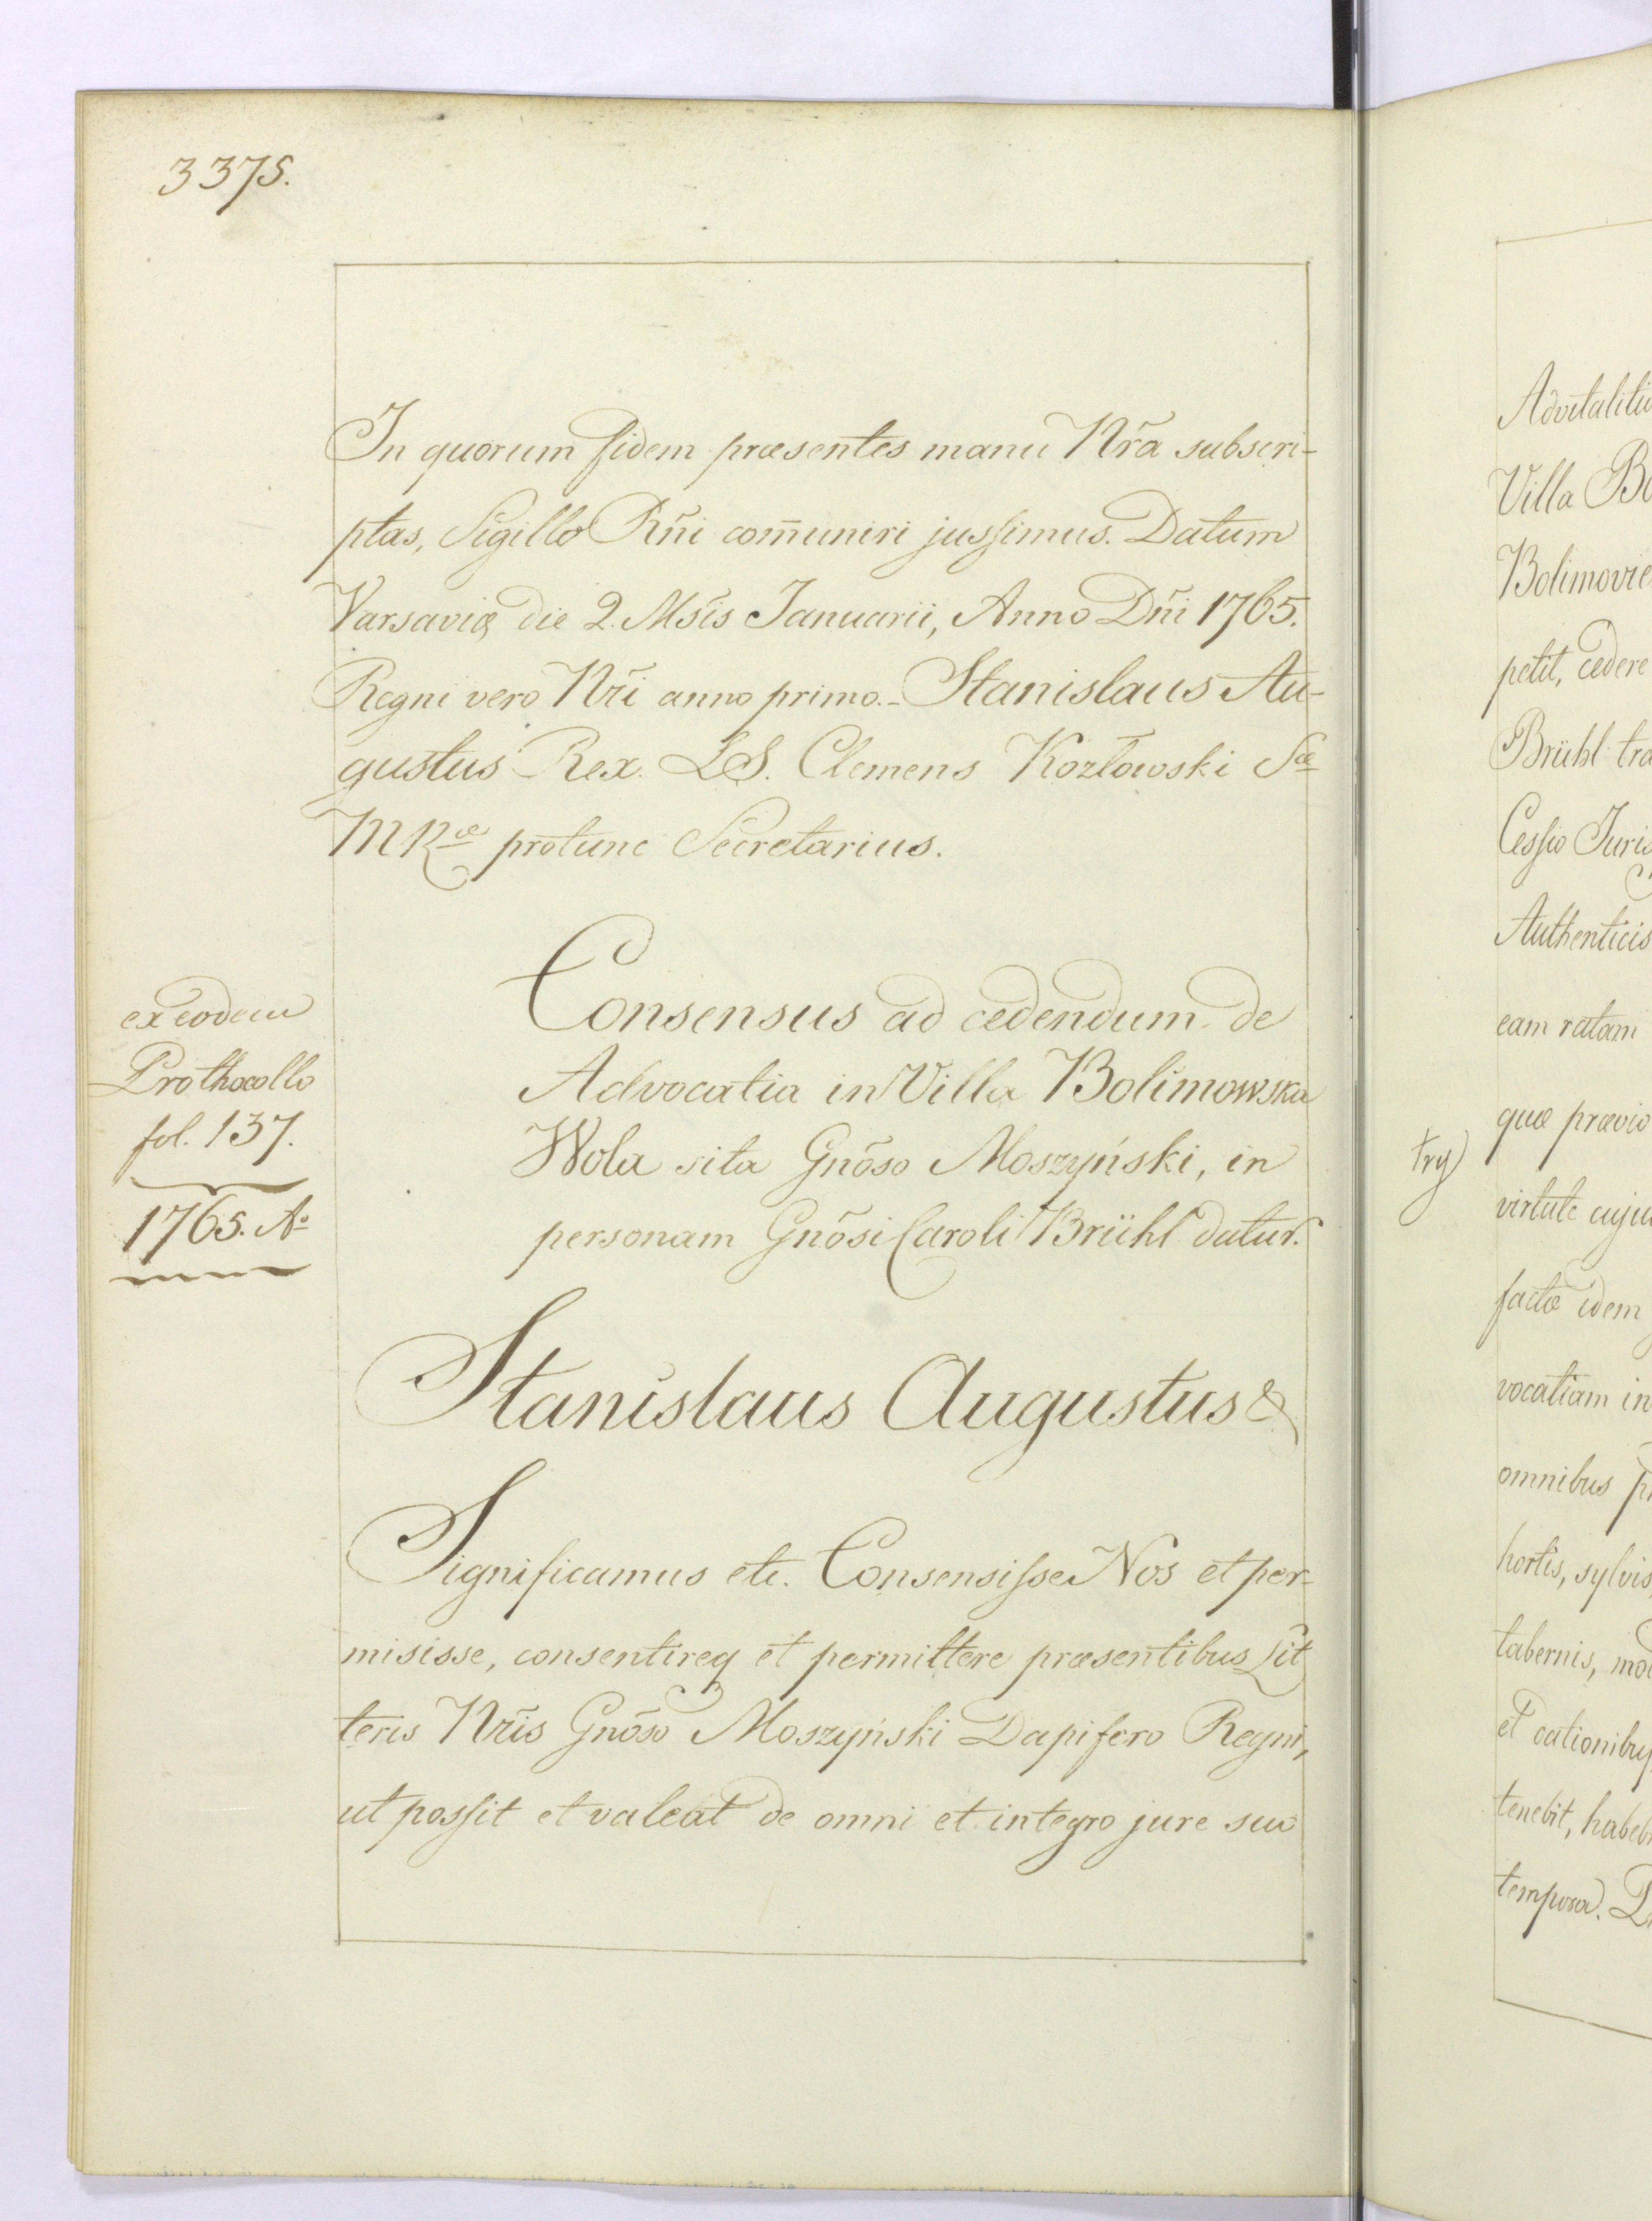 3375.
In quorum fidem præsentes manu Nr̃a subscri-
ptas, Sigillo Rñi com̃uniri jussimus. Datum
Varsaviæ die 2. Mśis Januarii, Anno Dñi 1765.
Regni vero Nr̃i anno primo. - Stanislaus Au-
gustus Rex. LS. Clemens Kozłowski Sæ
MRæ protunc Secretarius.
ex eodem
Prothocollo
fol. 137.
1765. Aº
Consensus ad cedendum de
Advocatia in Villa Bolimowska
Wola sita Gnõso Moszyński, in
personam Gnõsi Caroli Brühl datur.
Stanislaus Augustus &
Significamus etc. Consensisse Nos et per-
misisse, consentireq et permittere præsentibus Lit
teris Nr̃is Gnõso Moszyński Dapifero Regni,
ut possit et valeat de omni et integro jure suo
Villa
petit, cedere
Brühl
Cessio Juris
Authenticis
eam ratam
quæ prævio
try
virtute
factæ idem
vocatiam in
omnibus
hortis, sylvis,
tabernis,
et
tenebit,
tempora.